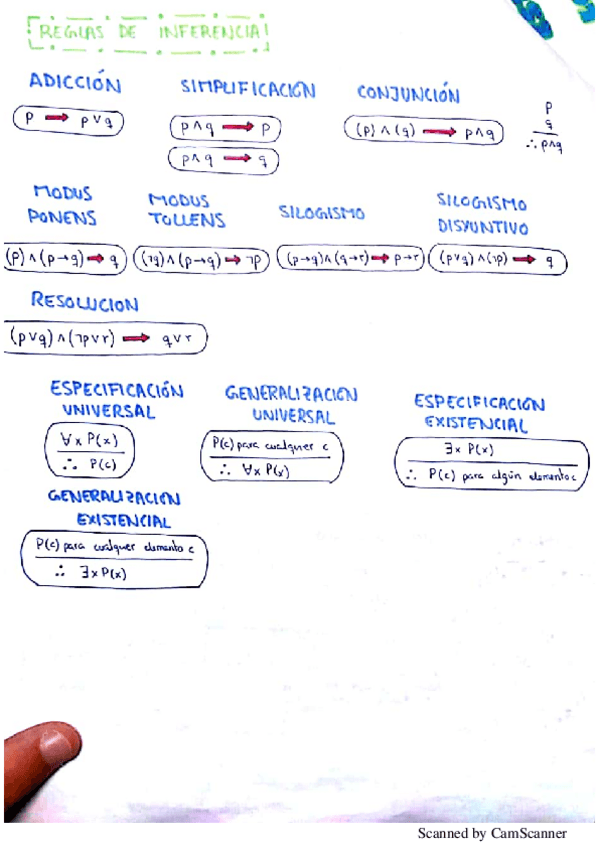 REGLAS DE INFERENCIA
ADICCIÓN
p → p∨q
SIMPLIFICACIÓN
p∧q → p
p∧q → q
CONJUNCIÓN
(p)∧(q) → p∧q
p
q
∴ p∧q
MODUS
PONENS
(p)∧(p→q) → q
MODUS
TOLLENS
(¬q)∧(p→q) → ¬p
SILOGISMO
(p→q)∧(q→r) → p→r
SILOGISMO
DISYUNTIVO
(p∨q)∧(¬p) → q
RESOLUCION
(p∨q)∧(¬p∨r) → q∨r
ESPECIFICACIÓN
UNIVERSAL
∀x P(x)
∴ P(c)
GENERALIZACION
UNIVERSAL
P(c) para cualquier c
∴ ∀x P(x)
ESPECIFICACION
EXISTENCIAL
∃x P(x)
∴ P(c) para algún elemento c
GENERALIZACION
EXISTENCIAL
P(c) para cualquer elemento c
∴ ∃x P(x)
Scanned by CamScanner